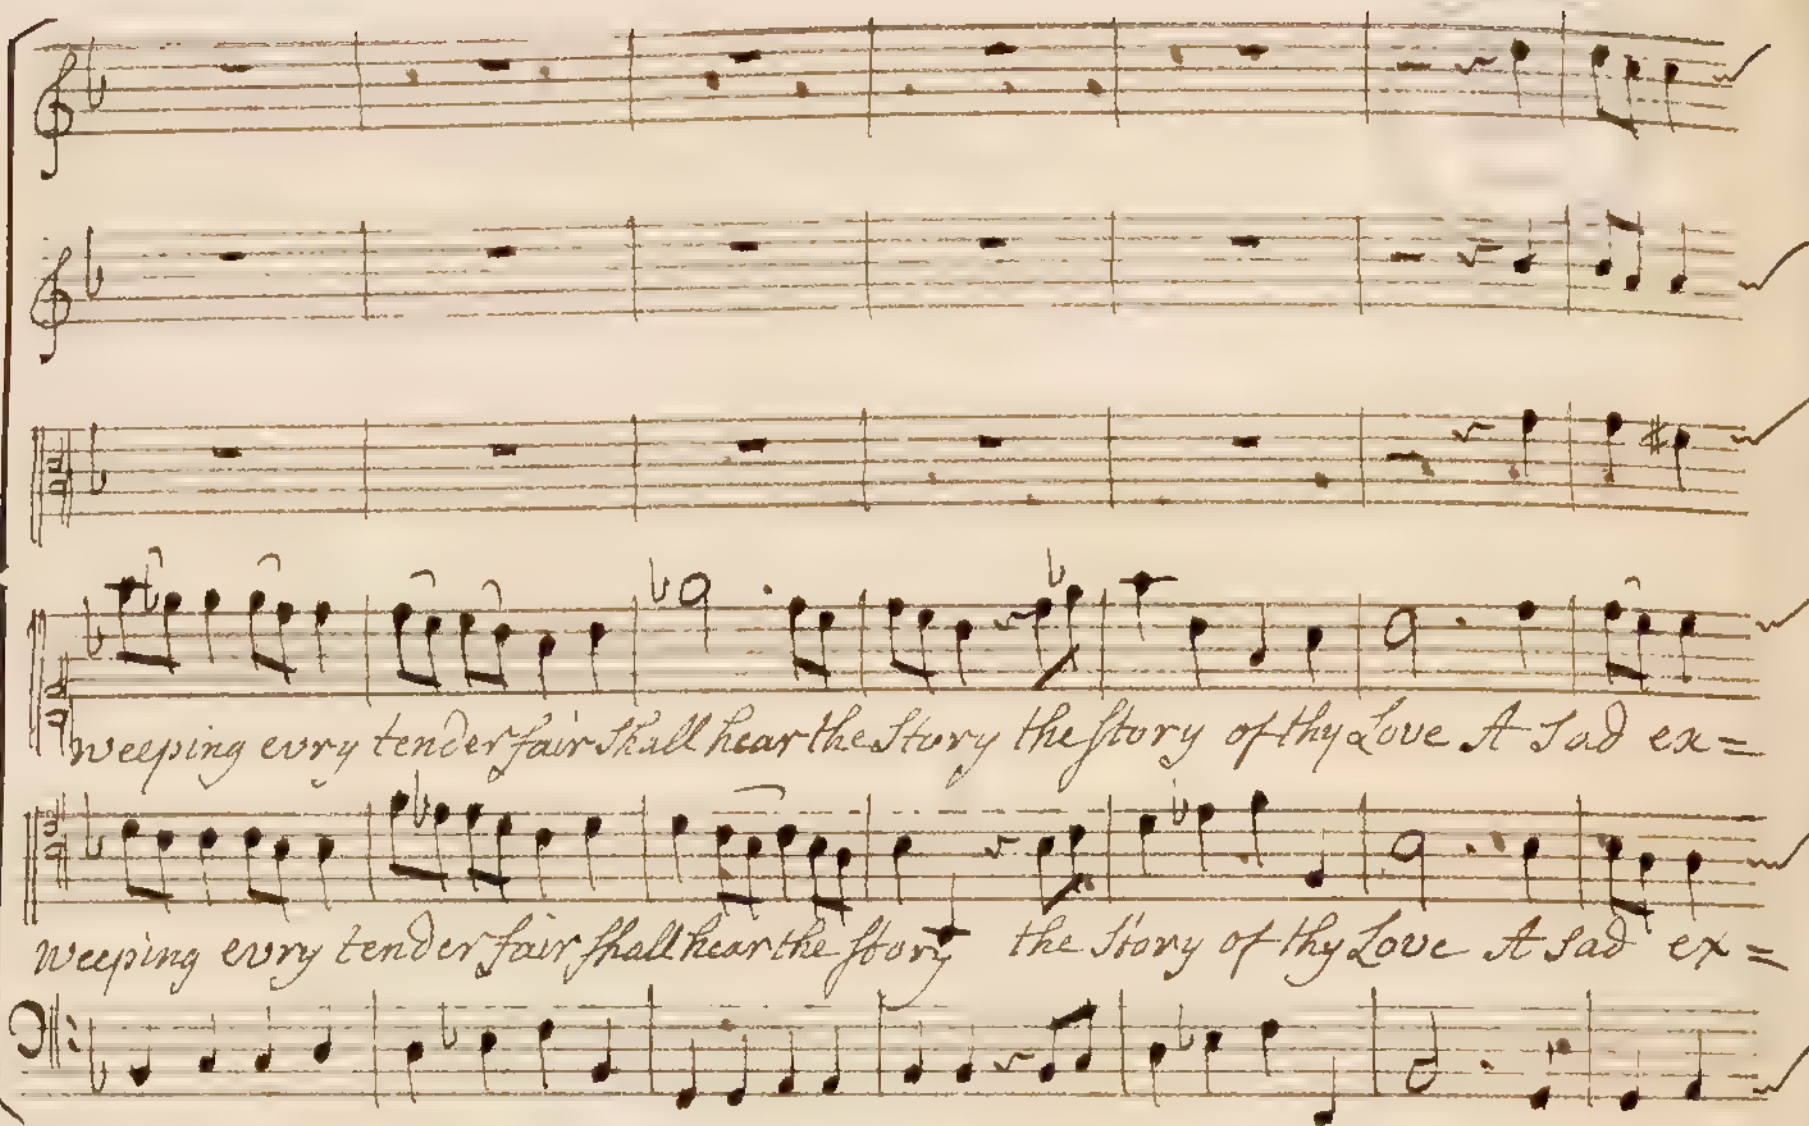 weeping evry tender fair shall hear the Story the story of thy Love A sad ex=
weeping evry tender fair shall hear the story the story of thy Love A sad ex=